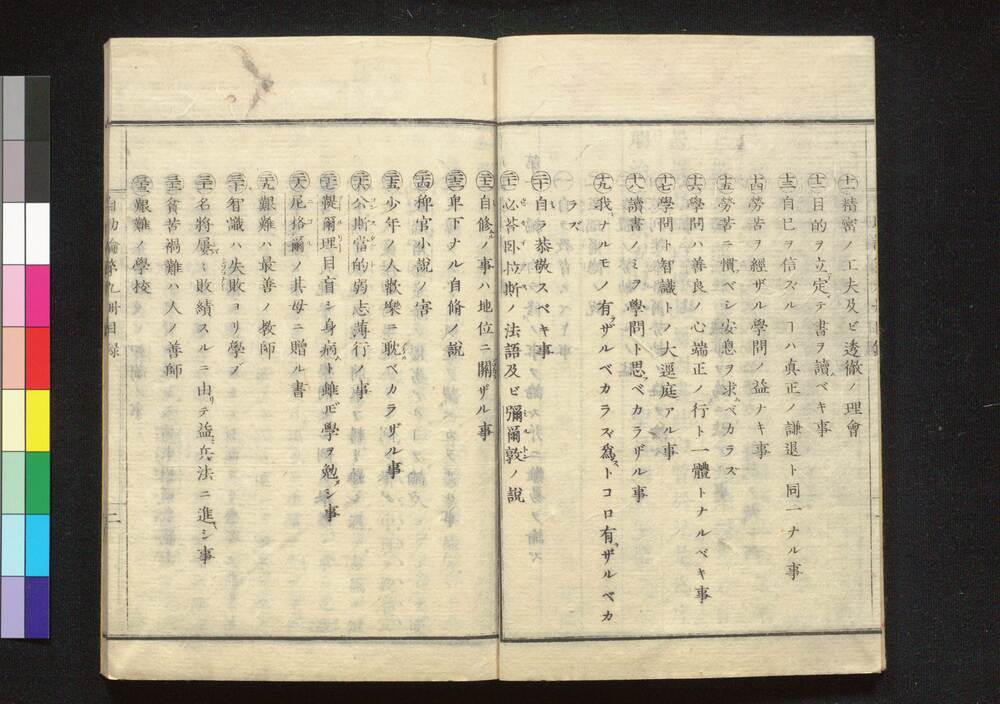 十一 精密ノ工夫及ビ透徹ノ理會
十二 目的ヲ立定テ書ヲ讀ベキ事
十三 自己ヲ信ズルヿハ真正ノ謙退ト同一ナル事
十四 勞苦ヲ經ザル學問ノ益ナキ事
十五 勞苦ニ慣ベシ安息ヲ求ベカラズ
十六 學問ハ善良ノ心端正ノ行ト一體トナルベキ事
十七 學問ト智識トノ大逕庭アル事
十八 讀書ノミヲ學問ト思ベカラザル事
十九 我ナルモノ有ザルベカラズ爲トコロ有ザルベカ
ラズ
二十 自ラ恭敬スベキ事
二十一 必荅臥拉斯ノ法語及ビ彌爾敦ノ說
二十二 自修ノ事ハ地位ニ關ザル事
二十三 卑下ナル自修ノ說
二十四 稗官小說ノ害
二十五 少年ノ人歡樂ニ耽ベカラザル事
二十六 公斯當的弱志薄行ノ事
二十七 鞮爾理目盲シ身病ト雖ドモ學ヲ勉シ事
二十八 尼格爾ノ其母ニ贈ル書
二十九 艱難ハ最善ノ教師
三十 智識ハ失敗ヨリ學ブ
三十一 名將屢〻敗績スルニ由テ益〻兵法ニ進シ事
三十二 貧苦禍難ハ人ノ善師
三十三 艱難ノ學校
自助論第九冊目録
二